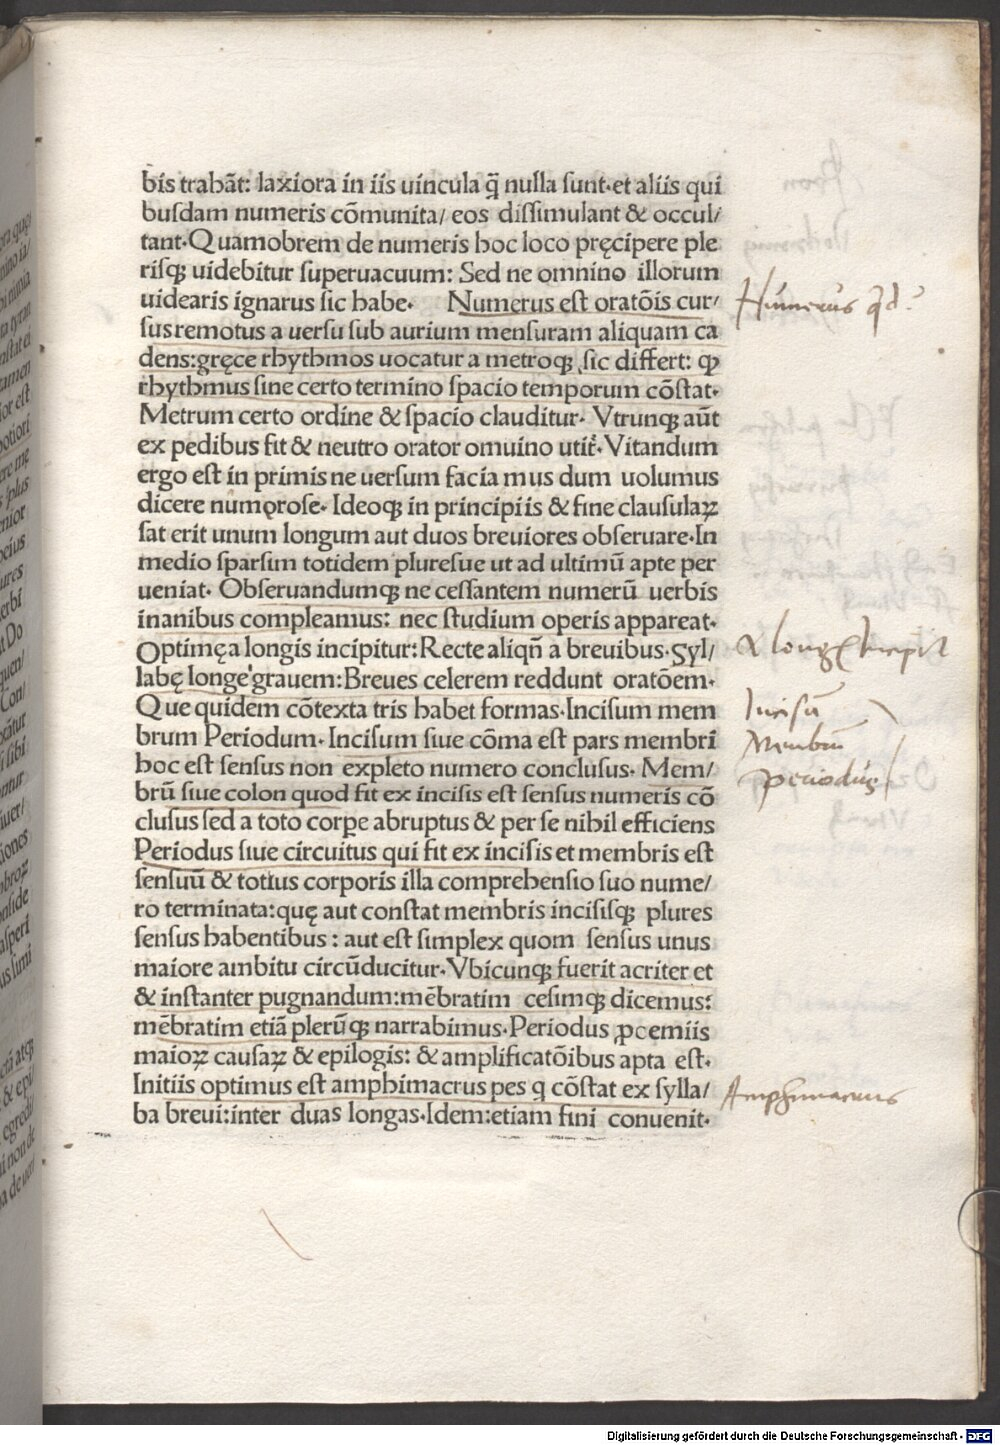 bis trabãt: laxiora in iis uincula q̃ nulla sunt·et aliis qui
busdam numeris cõmunita/ eos dissimulant & occul/
tant·Quamobrem de numeris hoc loco pręcipere ple
risq; uidebitur superuacuum: Sed ne omnino illorum
uidearis ignarus sic habe· Numerus est oratõis cur/
sus remotus a uersu sub aurium mensuram aliquam ca
dens:gręce rhythmos uocatur a metroq; sic differt: ꝙ
rhythmus sine certo termino spacio temporum cõstat·
Metrum certo ordine & spacio clauditur· Vtrunq; aũt
ex pedibus fit & neutro orator omuino utit̃· Vitandum
ergo est in primis ne uersum facia mus dum uolumus
dicere numęrose· Ideoq; in principiis & fine clausulaꝝ
sat erit unum longum aut duos breuiores obseruare·In
medio sparsim totidem pluresue ut ad ultimũ apte per
ueniat· Obseruandumq; ne cessantem numerũ uerbis
inanibus compleamus: nec studium operis appareat·
Optimę a longis incipitur: Recte aliqñ a breuibus·Syl/
labę longe grauem:Breues celerem reddunt oratõem·
Que quidem cõtexta tris habet formas·Incisum mem
brum Periodum· Incisum siue cõma est pars membri
hoc est sensus non expleto numero conclusus· Mem/
brũ siue colon quod fit ex incisis est sensus numeris cõ
clusus sed a toto corpe abruptus & per se nihil efficiens
Periodus siue circuitus qui fit ex incisis et membris est
sensuũ & totius corporis illa comprehensio suo nume/
ro terminata:quę aut constat membris incisisq; plures
sensus habentibus : aut est simplex quom sensus unus
maiore ambitu circũducitur·Vbicunq; fuerit acriter et
& instanter pugnandum:mẽbratim cesimq; dicemus:
mẽbratim etiã plerũq; narrabimus·Periodus ꝓcemiis
maioꝝ causaꝝ & epilogis: & amplificatõibus apta est·
Initiis optimus est amphimacrus pes q cõstat ex sylla/
ba breui:inter duas longas·Idem:etiam fini conuenit·
Numerus qd?
A long incipit
Incisũ
Membrũ
periodus
Amphimacrus
Digitalisierung gefördert durch die Deutsche Forschungsgemeinschaft - DFG